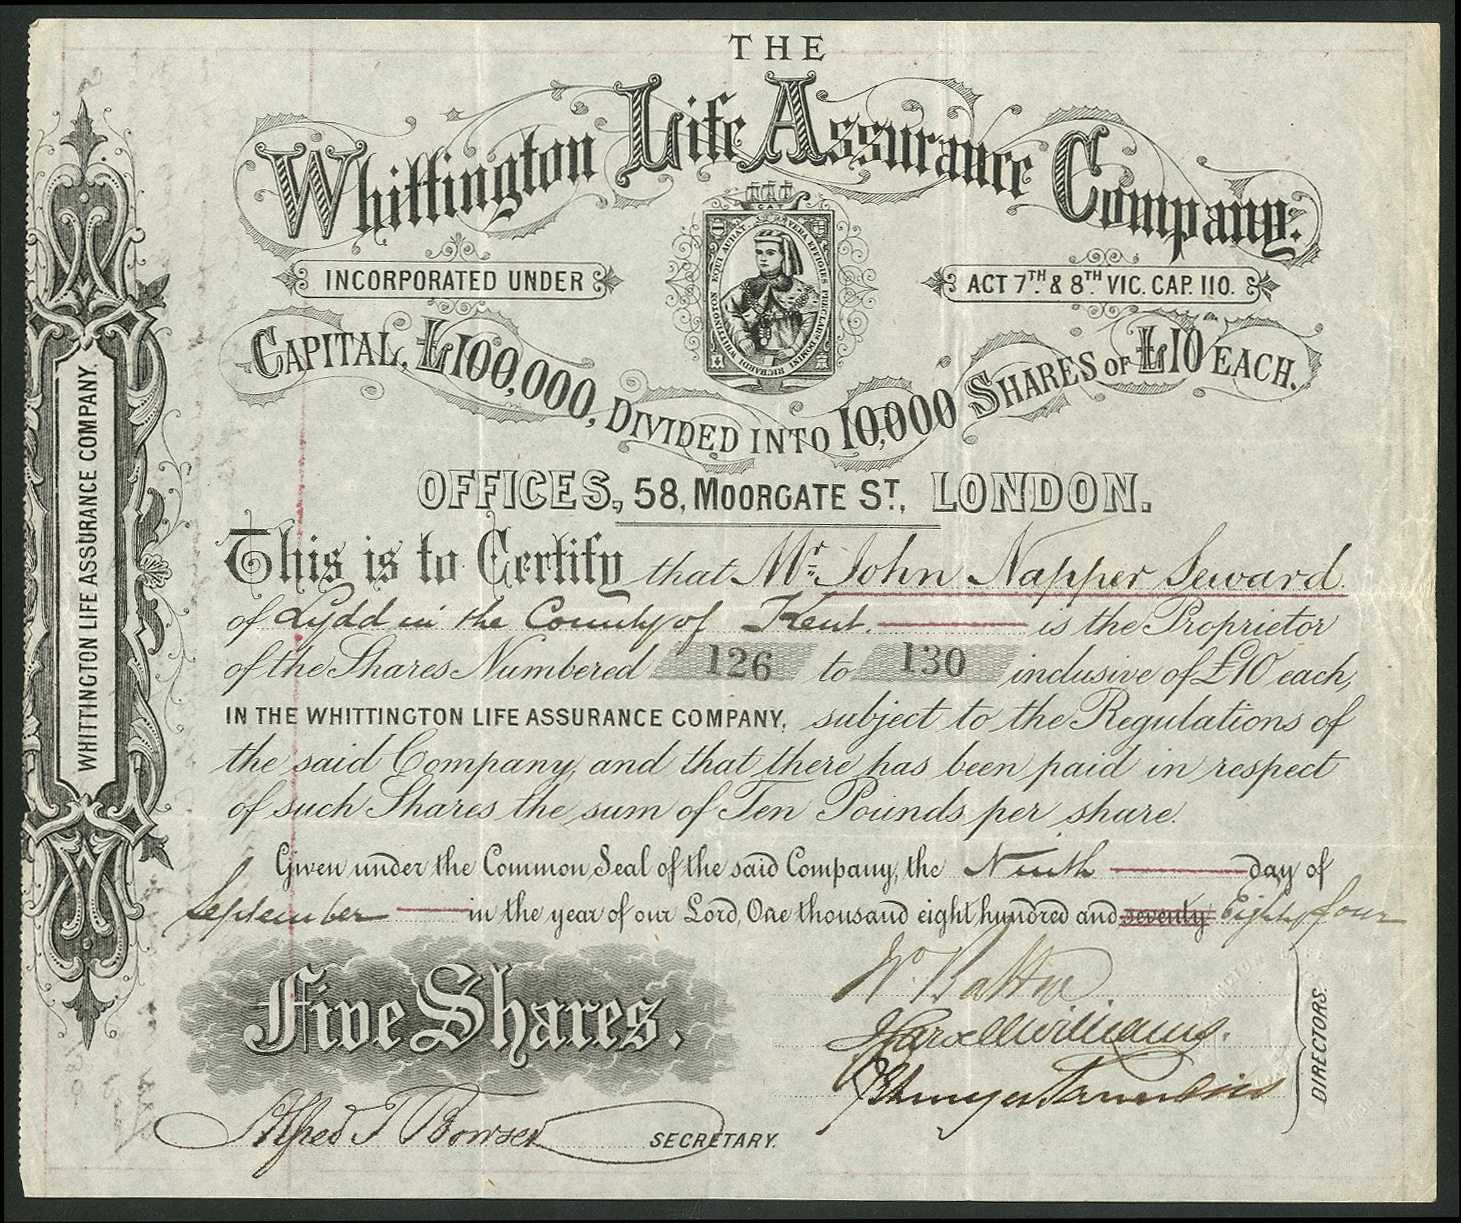 THE
Whittington Life Assurance Company.
INCORPORATED UNDER
ACT 7TH & 8TH VIC. CAP. 110.
CAT
RICARDI WHITINGTON EQUI AURAT.
VERA EFFIGIES PRECLARI DOMINI
CAPITAL, £100,000, DIVIDED INTO 10,000 SHARES OF £10 EACH.
OFFICES, 58, MOORGATE ST., LONDON.
This is to Certify that Mr. John Napper Seward
of Lydd in the County of Kent. is the Proprietor
of the Shares Numbered 126 to 130 inclusive of £10 each,
IN THE WHITTINGTON LIFE ASSURANCE COMPANY, subject to the Regulations of
the said Company, and that there has been paid in respect
of such Shares the sum of Ten Pounds per share.
Given under the Common Seal of the said Company, the Ninth day of
September in the year of our Lord, One thousand eight hundred and seventy Eighty four
Five Shares.
DIRECTORS.
Alfred T Bowser SECRETARY.
WHITTINGTON LIFE ASSURANCE COMPANY.